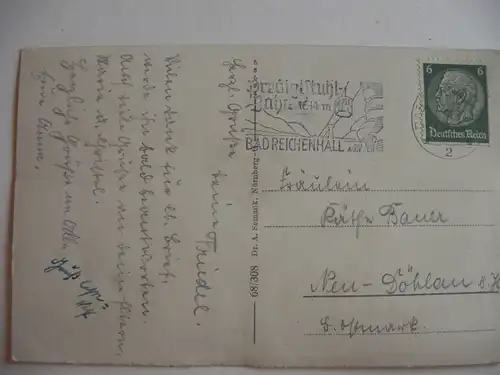 Vielen Dank für lb. Brief,
werde ihn bald beantworten.
Auch viele Grüße an deine Eltern,
Maria u.
Herzliche Grüße an Alle
Herzl. Grüße
deine Friedel.
Dr. A. Schmitt, Nürnberg
68/308
Predigtstuhl-
Bahn 1614 m
BAD REICHENHALL
2
6 6
Deutsches Reich
Fräulein
Käthe Bauer
Neu-Döhlau
b. Ostmark.